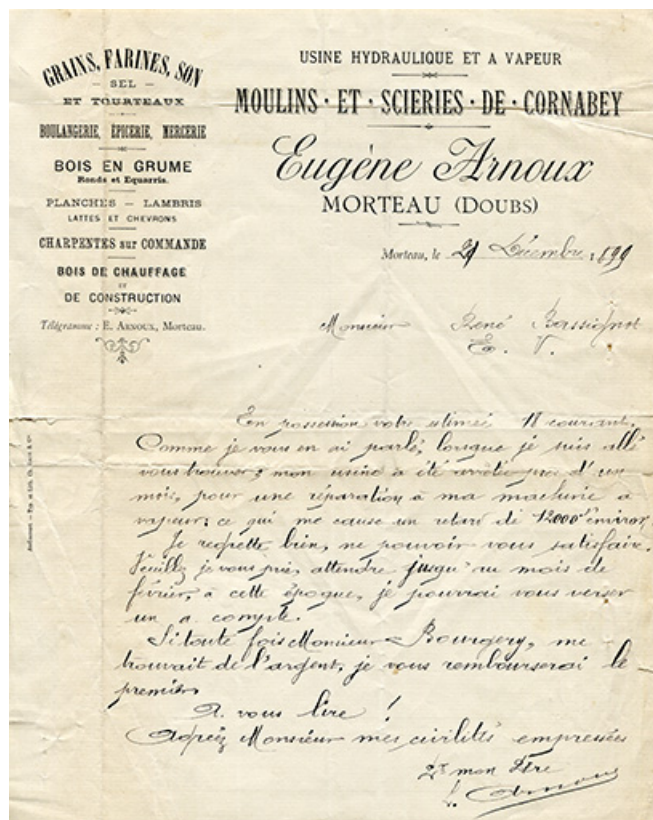 GRAINS, FARINES, SON
— SEL —
ET TOURTEAUX
BOULANGERIE, ÉPICERIE, MERCERIE
BOIS EN GRUME
Ronds et Equarris.
PLANCHES — LAMBRIS
LATTES ET CHEVRONS
CHARPENTES sur COMMANDE
BOIS DE CHAUFFAGE
ET
DE CONSTRUCTION
Télégramme : E. ARNOUX, Morteau.
USINE HYDRAULIQUE ET A VAPEUR
MOULINS · ET · SCIERIES · DE · CORNABEY
Eugène Arnoux
MORTEAU (DOUBS)
Morteau, le 21 Décembre 1899
Monsieur René Bassignot
E. V.
En possession votre estimée 18 courant.
Comme je vous en ai parlé, lorsque je suis allé
vous trouver; mon usine a été arrêtée près d'un
mois, pour une réparation à ma machine à
vapeur; ce qui me cause un retard de 12000f environ
Je regrette bien, ne pouvoir vous satisfaire.
Veuillez je vous prie, attendre jusqu'au mois de
février, à cette époque, je pourrai vous verser
un a. compte.
Si toute fois Monsieur Bourgery, me
trouvait de l'argent, je vous rembourserai le
premier
A vous lire !
Agréez Monsieur mes civilités empressées
E. Arnoux